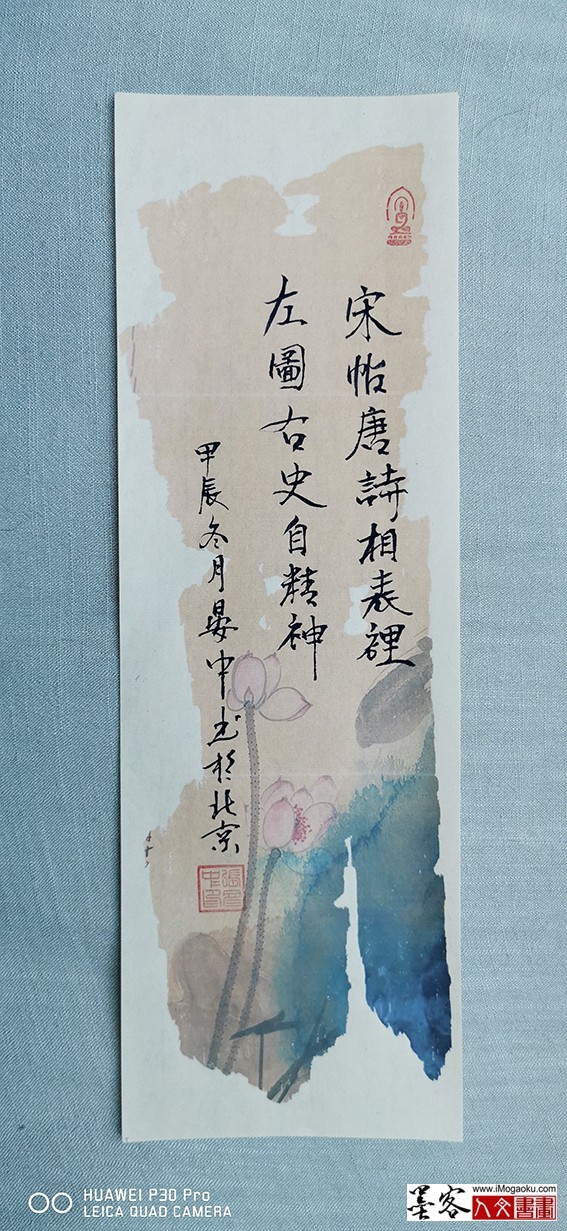 宋帖唐詩相表裡
左圖右史自精神
甲辰冬月晏中书於北京
HUAWEI P30 Pro
LEICA QUAD CAMERA
www.iMogaoku.com
墨客人文書畫